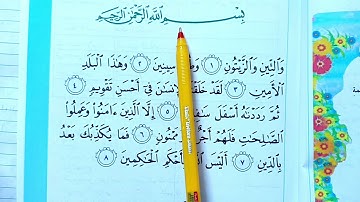 بِسْمِ اللَّهِ الرَّحْمَٰنِ الرَّحِيمِ
وَالتِّينِ وَالزَّيْتُونِ ١ وَطُورِ سِينِينَ ٢ وَهَٰذَا الْبَلَدِ
الْأَمِينِ ٣ لَقَدْ خَلَقْنَا الْإِنسَٰنَ فِيٓ أَحْسَنِ تَقْوِيمٍ ٤
ثُمَّ رَدَدْنَٰهُ أَسْفَلَ سَٰفِلِينَ ٥ إِلَّا الَّذِينَ ءَامَنُوا وَعَمِلُوا
الصَّٰلِحَٰتِ فَلَهُمْ أَجْرٌ غَيْرُ مَمْنُونٍ ٦ فَمَا يُكَذِّبُكَ بَعْدُ
بِالدِّينِ ٧ أَلَيْسَ اللَّهُ بِأَحْكَمِ الْحَٰكِمِينَ ٨